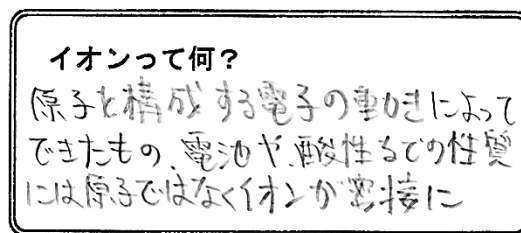 イオンって何？
原子を構成する電子の動きによって
できたもの、電池や、酸性などの性質
には原子ではなくイオンが密接に